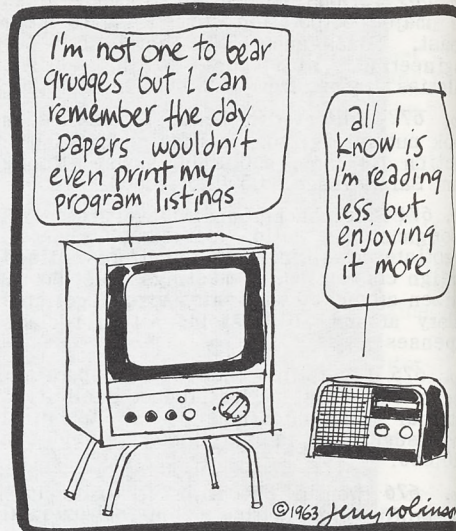 I'm not one to bear
grudges but I can
remember the day
papers wouldn't
even print my
program listings
all I
know is
I'm reading
less but
enjoying
it more
©1963 Jerry robinson